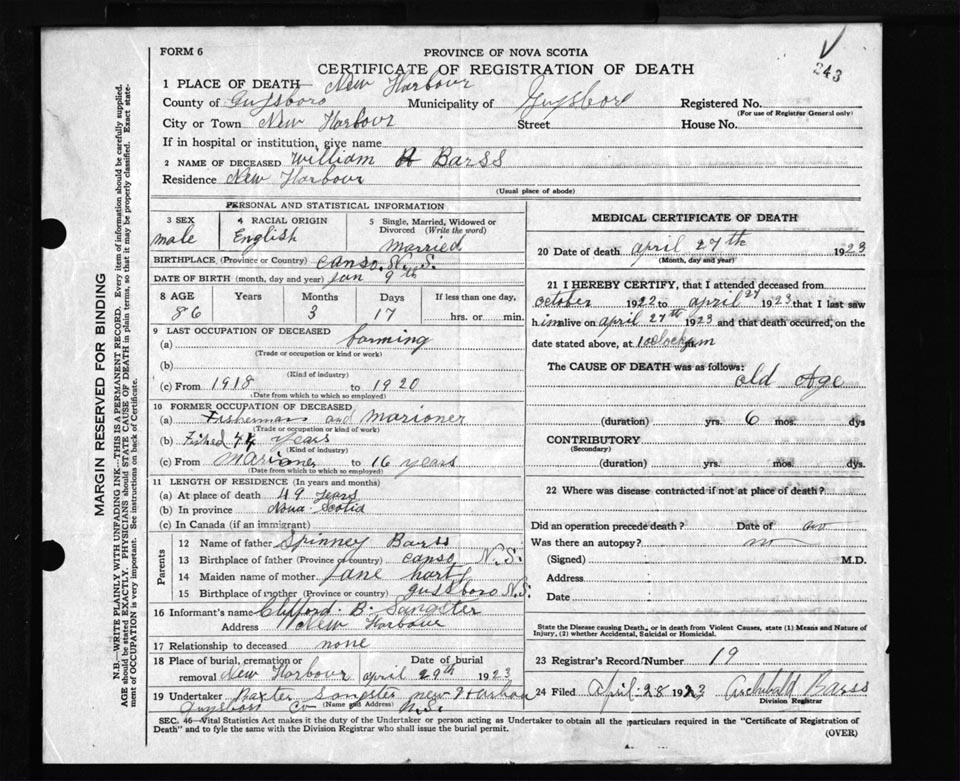 FORM 6
PROVINCE OF NOVA SCOTIA
CERTIFICATE OF REGISTRATION OF DEATH
243
1 PLACE OF DEATH— New Harbour
County of Guysboro Municipality of Guysboro Registered No.
(For use of Registrar General only)
City or Town New Harbour Street House No.
If in hospital or institution, give name
2 NAME OF DECEASED William H Barss
Residence New Harbour
(Usual place of abode)
PERSONAL AND STATISTICAL INFORMATION
3 SEX male
4 RACIAL ORIGIN English
5 Single, Married, Widowed or Divorced (Write the word) Married
BIRTHPLACE (Province or Country) Canso, N. S.
DATE OF BIRTH (month, day and year) Jan 9th
8 AGE Years Months Days If less than one day,
86 3 17 hrs. or min.
9 LAST OCCUPATION OF DECEASED
(a) farming
(Trade or occupation or kind or work)
(b)
(Kind of industry)
(c) From 1918 to 1920
(Date from which to which so employed)
10 FORMER OCCUPATION OF DECEASED
(a) Fisherman and Marioner
(Trade or occupation or kind of work)
(b) Fished 44 years
(Kind of industry)
(c) From Marioner to 16 years
(Date from which to which so employed)
11 LENGTH OF RESIDENCE (In years and months)
(a) At place of death 49 years
(b) In province Nova Scotia
(c) In Canada (if an immigrant)
Parents
12 Name of father Spinney Barss
13 Birthplace of father (Province or country) Canso N. S.
14 Maiden name of mother Jane hart
15 Birthplace of mother (Province or country) gussboro N.S.
16 Informant's name Clifford. B. Sangster
Address New Harbour
17 Relationship to deceased none
18 Place of burial, cremation or removal New Harbour
Date of burial april 29th 1923
19 Undertaker Baxter Sangster new Harbou
(Name and Address)
Guysboro Co N.S.
MEDICAL CERTIFICATE OF DEATH
20 Date of death april 27th 1923
(Month, day and year)
21 I HEREBY CERTIFY, that I attended deceased from
october 1922 to april 27 1923 that I last saw
him alive on april 27th 1923 and that death occurred, on the
date stated above, at 10 oclock pm
The CAUSE OF DEATH was as follows:
old Age
(duration) yrs. 6 mos. dys
CONTRIBUTORY
(Secondary)
(duration) yrs. mos. dys
22 Where was disease contracted if not at place of death?
Did an operation precede death? Date of no
Was there an autopsy? no
(Signed) M.D.
Address
Date
State the Disease causing Death, or in death from Violent Causes, state (1) Means and Nature of
Injury, (2) whether Accidental, Suicidal or Homicidal.
23 Registrar's Record Number 19
24 Filed April 28 1923 Archibald Barss
Division Registrar
SEC. 46—Vital Statistics Act makes it the duty of the Undertaker or person acting as Undertaker to obtain all the particulars required in the "Certificate of Registration of
Death" and to fyle the same with the Division Registrar who shall issue the burial permit.
(OVER)
MARGIN RESERVED FOR BINDING
N.B.—WRITE PLAINLY WITH UNFADING INK—THIS IS A PERMANENT RECORD. Every item of information should be carefully supplied.
AGE should be stated EXACTLY. PHYSICIANS should STATE CAUSE OF DEATH in plain terms, so that it may be properly classified. Exact state-
ment of OCCUPATION is very important. See instructions on back of Certificate.